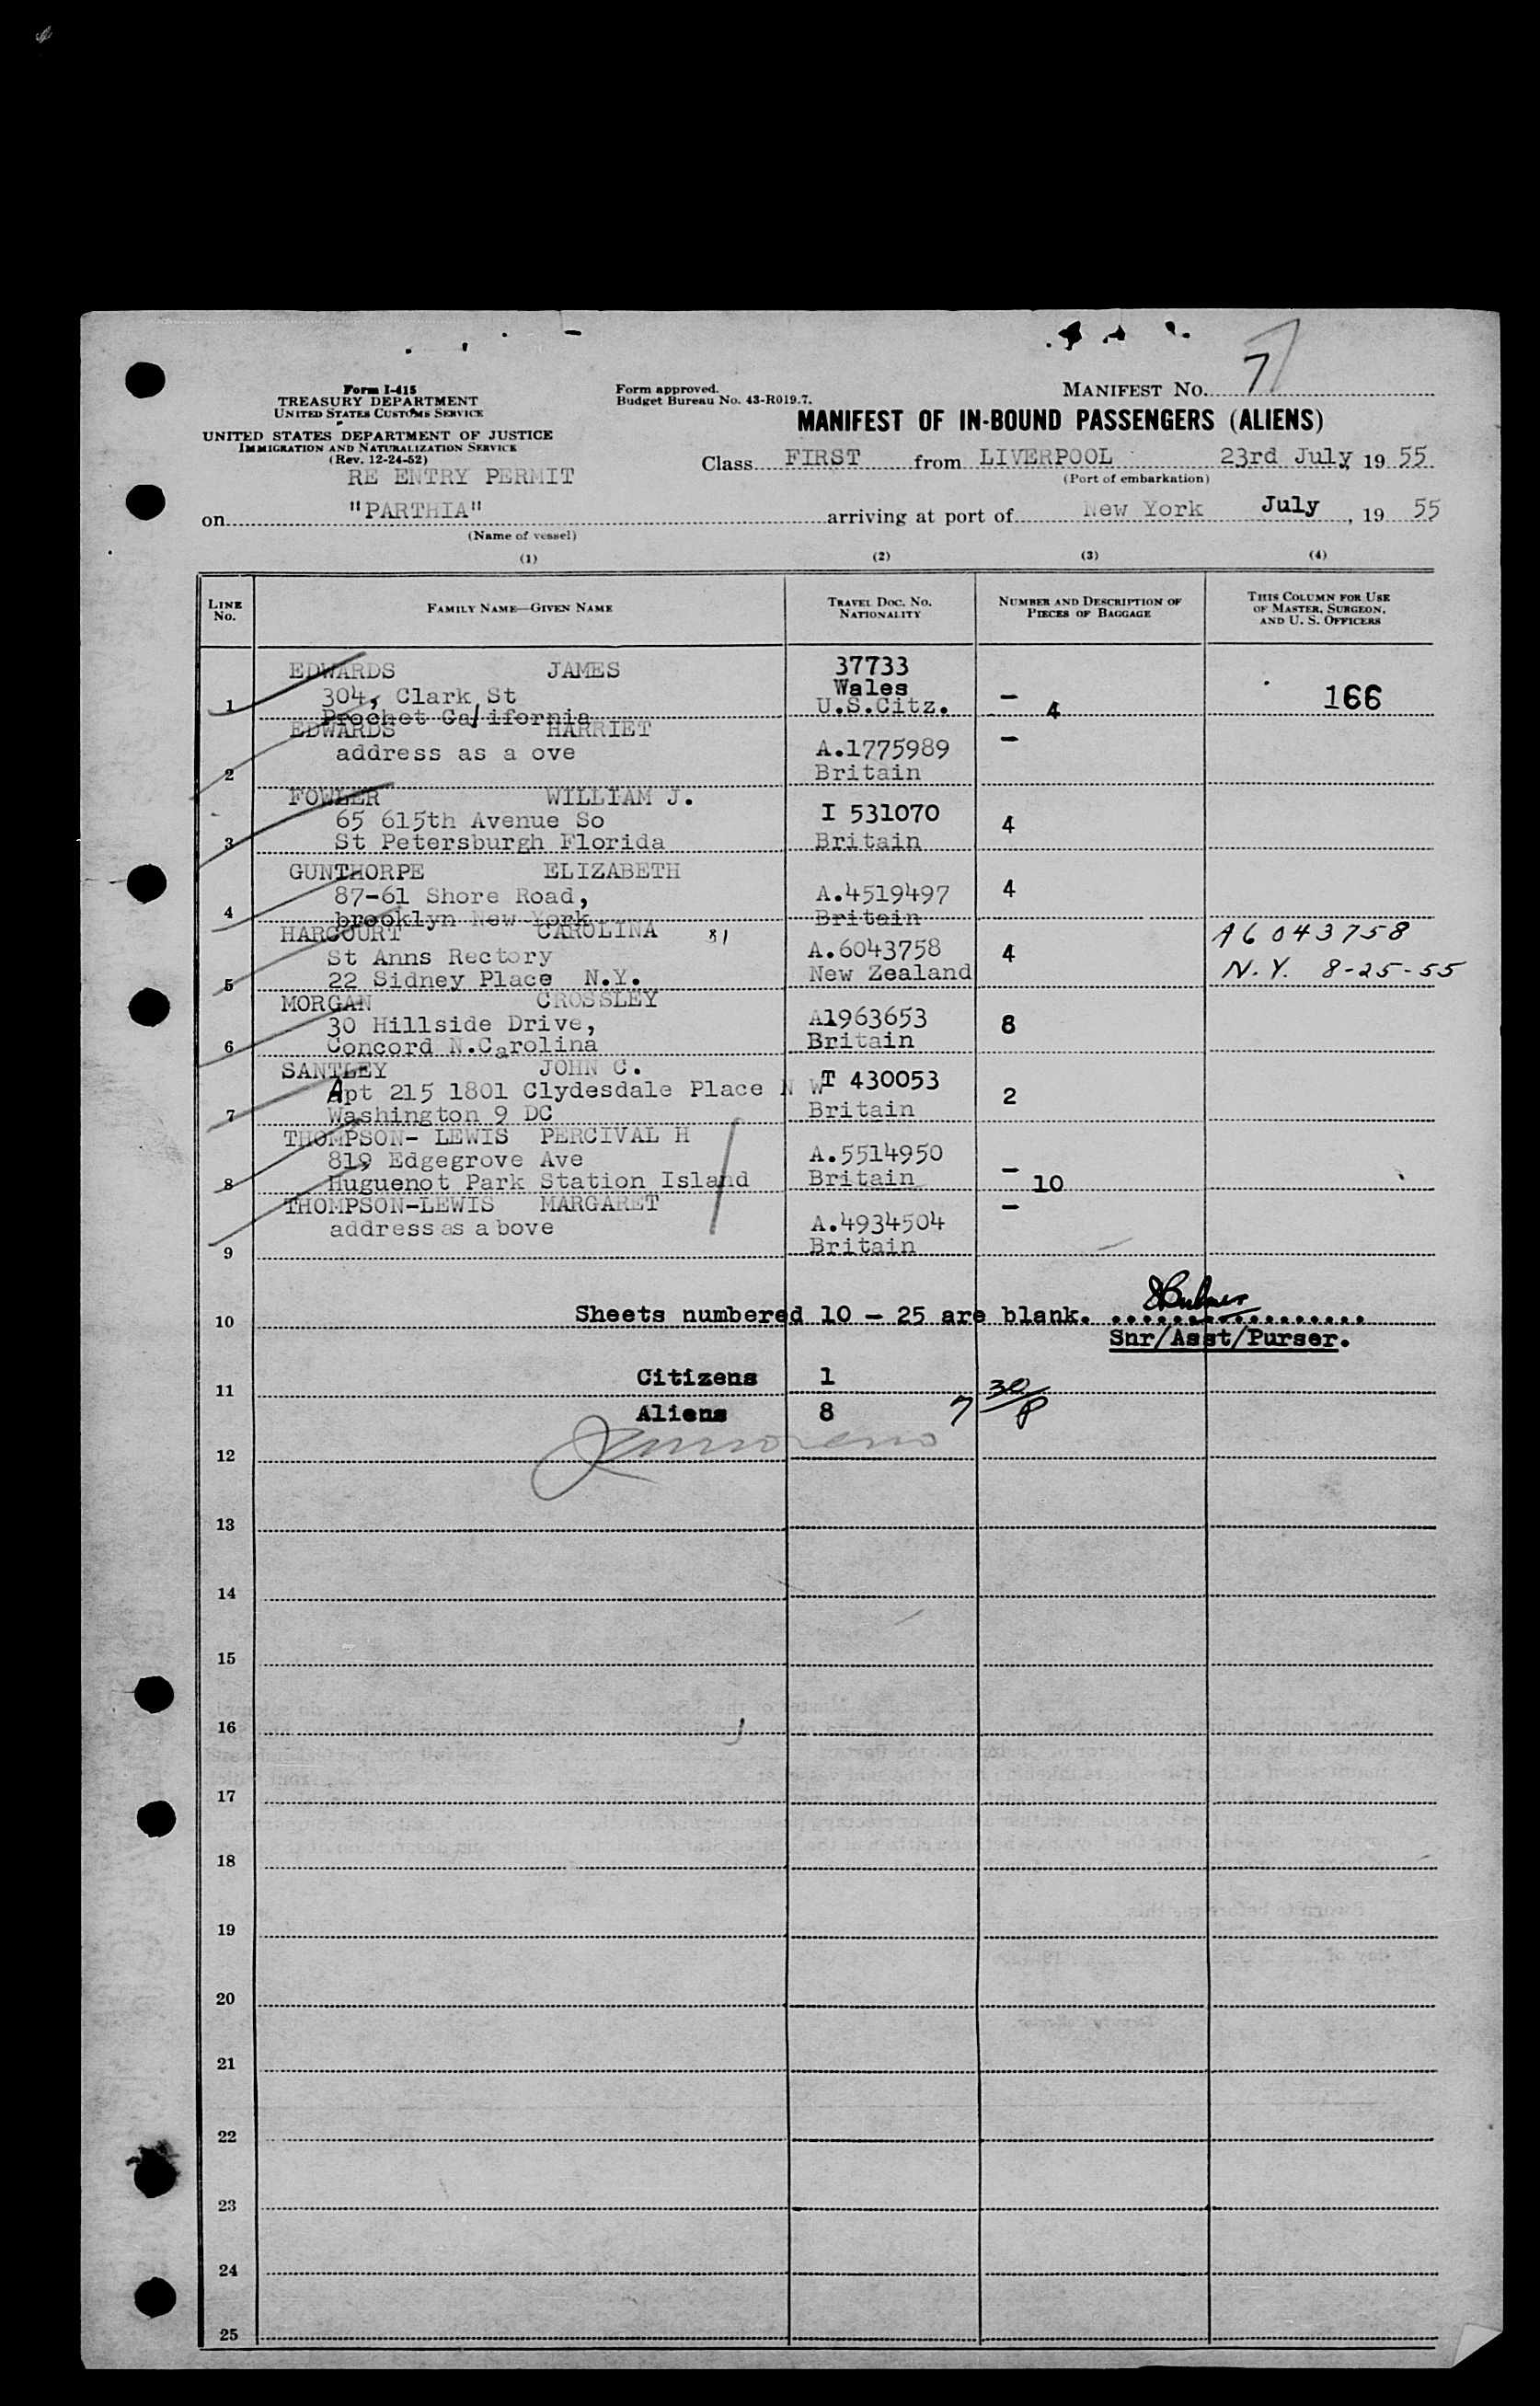 7
Form I-415
TREASURY DEPARTMENT
UNITED STATES CUSTOMS SERVICE
UNITED STATES DEPARTMENT OF JUSTICE
IMMIGRATION AND NATURALIZATION SERVICE
(Rev. 12-24-52)
RE ENTRY PERMIT
Form approved.
Budget Bureau No. 43-R019.7.
MANIFEST No. 7
MANIFEST OF IN-BOUND PASSENGERS (ALIENS)
Class FIRST from LIVERPOOL 23rd July, 19 55
(Port of embarkation)
on "PARTHIA" arriving at port of New York July, 19 55
(Name of vessel)
(1) (2) (3) (4)
LINE No. FAMILY NAME—GIVEN NAME TRAVEL DOC. No. NATIONALITY NUMBER AND DESCRIPTION OF PIECES OF BAGGAGE THIS COLUMN FOR USE OF MASTER, SURGEON, AND U. S. OFFICERS
EDWARDS JAMES 37733
304, Clark St Wales
1 Prochet California U.S.Citz. – 4 166
EDWARDS HARRIET –
address as a ove A.1775989
2 Britain
FOWLER WILLIAM J.
65 615th Avenue So I 531070 4
3 St Petersburgh Florida Britain
GUNTHORPE ELIZABETH
87-61 Shore Road, A.4519497 4
4 brooklyn New York Britain
HARCOURT CAROLINA 81 A6 043758
St Anns Rectory A.6043758 4
5 22 Sidney Place N.Y. New Zealand N.Y. 8-25-55
MORGAN CROSSLEY
30 Hillside Drive, A1963653 8
6 Concord N.Carolina Britain
SANTLEY JOHN C.
Apt 215 1801 Clydesdale Place N W T 430053 2
7 Washington 9 DC Britain
THOMPSON- LEWIS PERCIVAL H
819 Edgegrove Ave A.5514950 –
8 Huguenot Park Station Island Britain 10
THOMPSON-LEWIS MARGARET –
address as a bove A.4934504
9 Britain
10 Sheets numbered 10 – 25 are blank.
Snr/Asst/Purser.
11 Citizens 1
Aliens 8 7 30/8
12
13
14
15
16
17
18
19
20
21
22
23
24
25